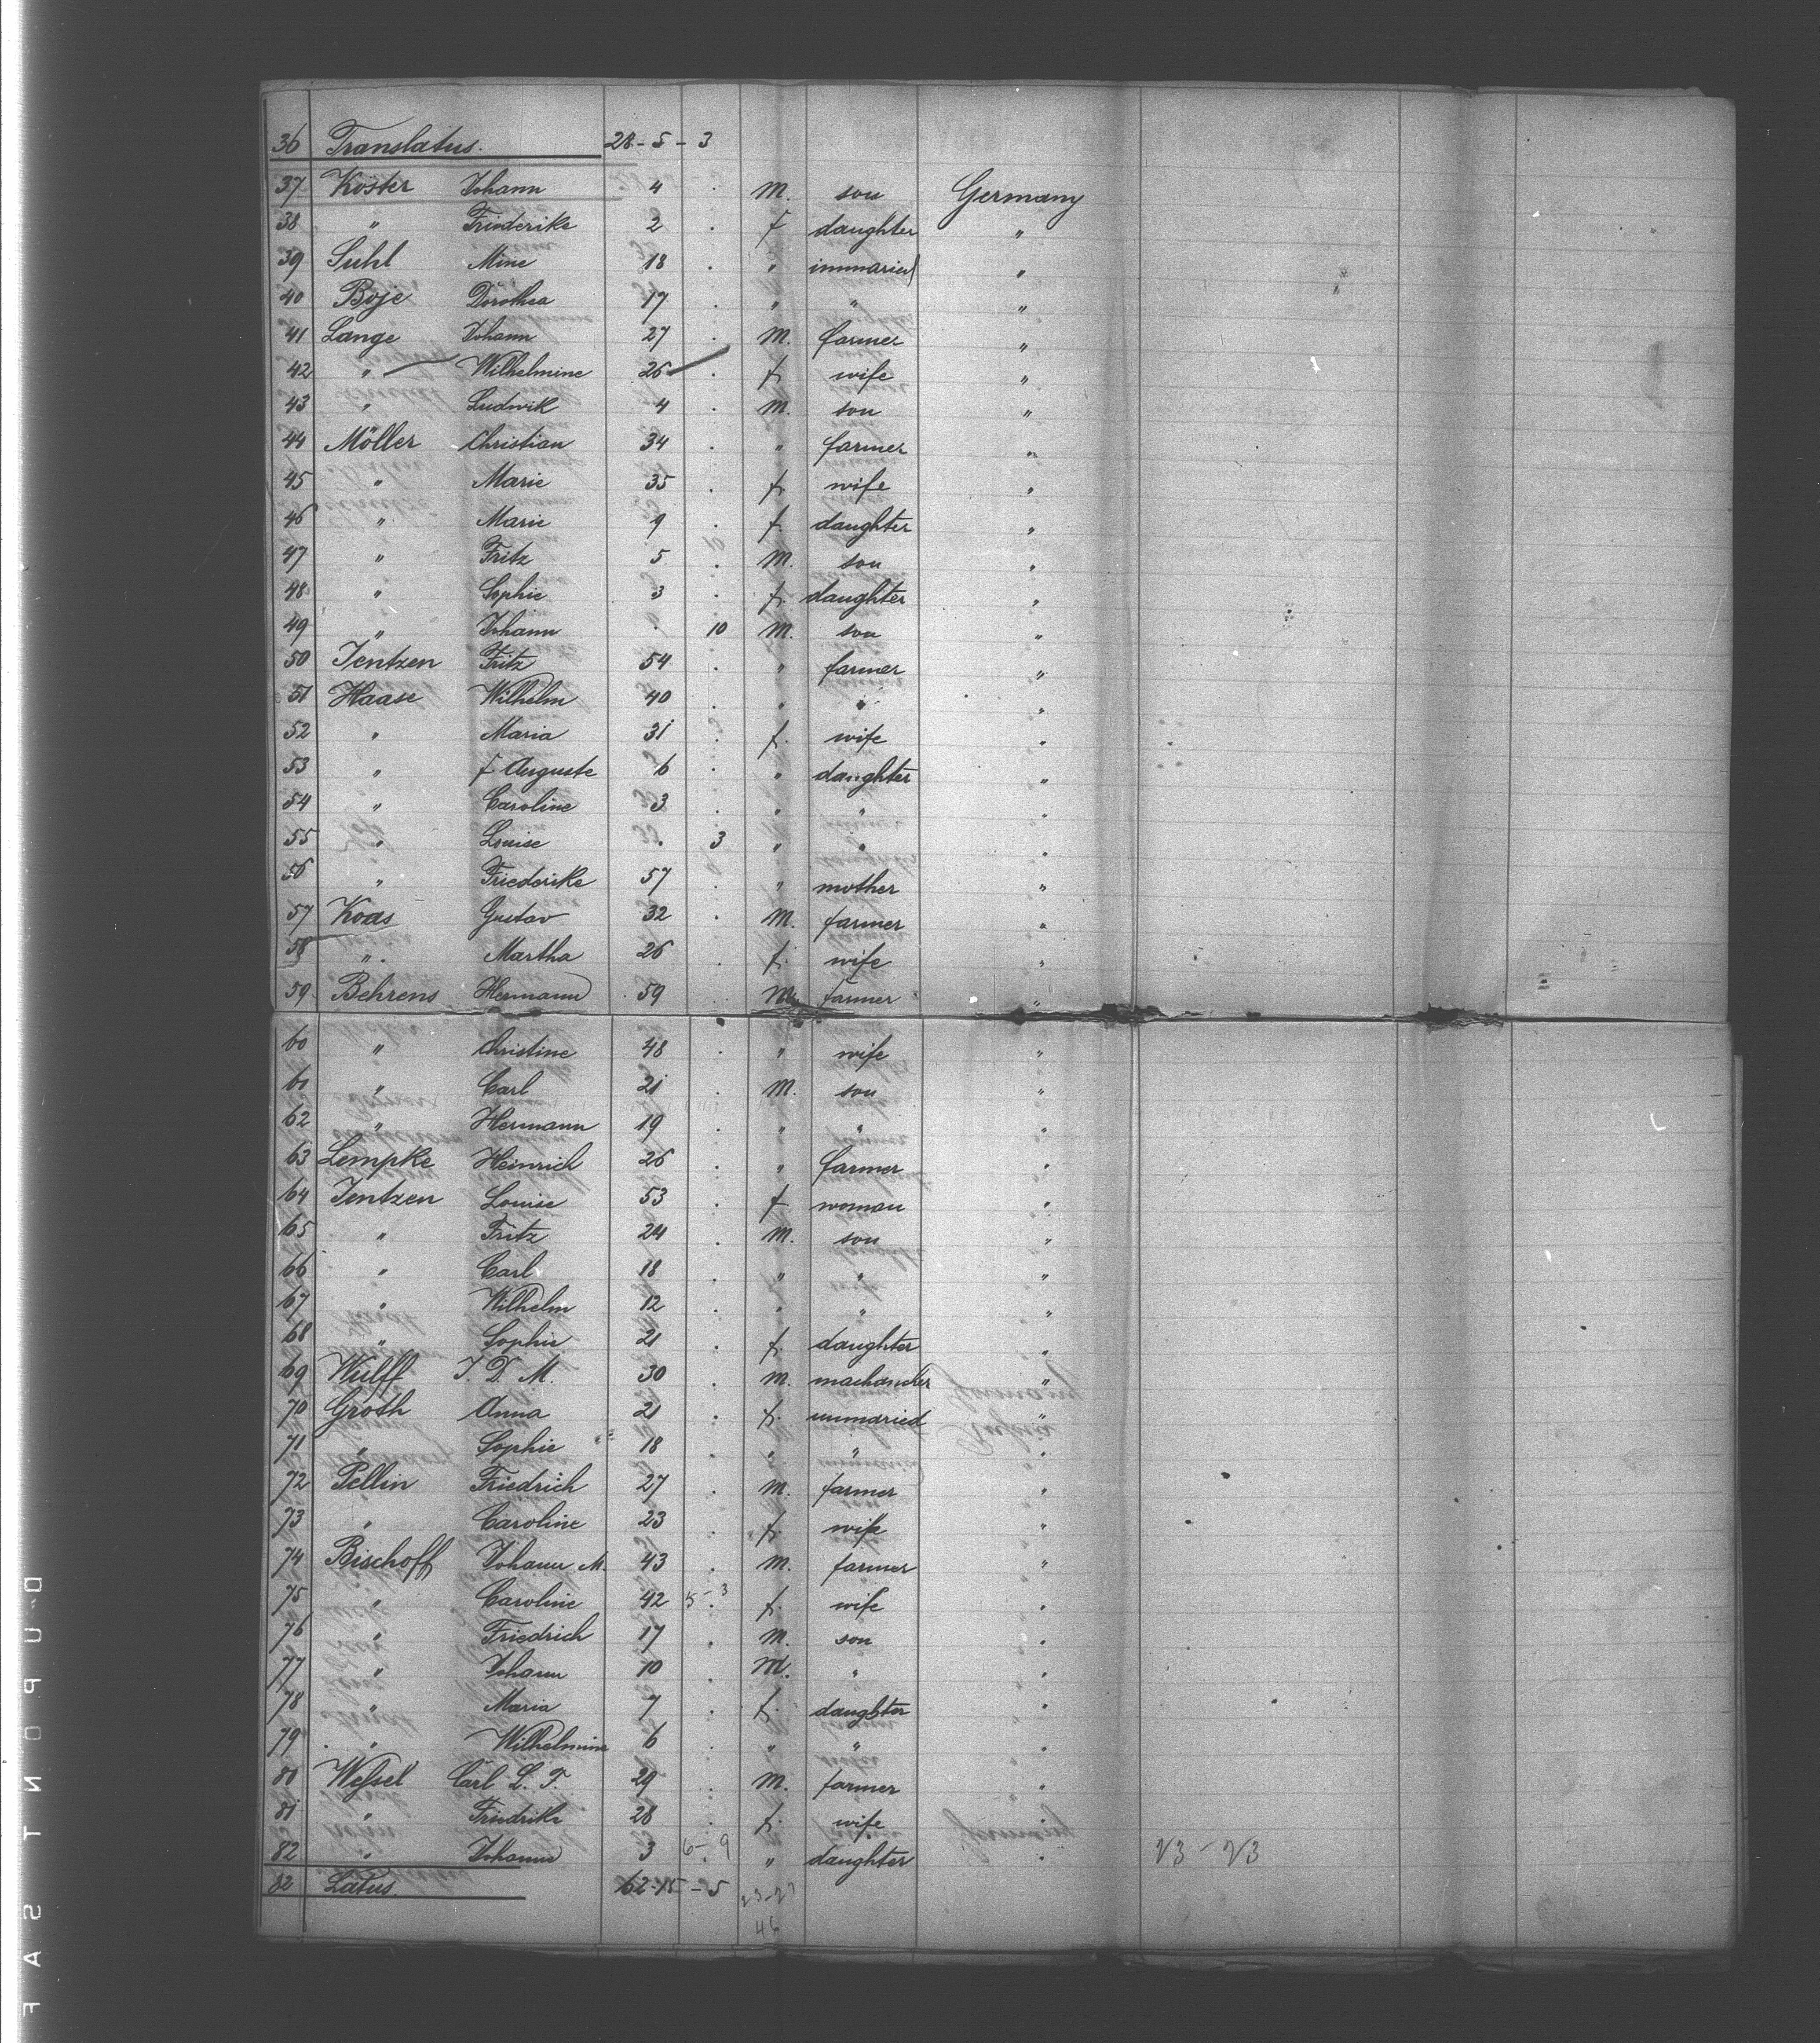 36 Translatus. 28 - 5 - 3
37 Köster Johann 4 . M. son Germany
38 " Friederike 2 . f daughter "
39 Suhl Mine 18 . " immaried "
40 Boje Dorothea 17 . " " "
41 Lange Johann 27 . M. farmer "
42 " Wilhelmine 26 . f. wife "
43 " Ludwik 4 . M. son "
44 Möller Christian 34 . " farmer "
45 " Marie 35 . f. wife "
46 " Marie 9 . f. daughter "
47 " Fritz 5 . M. son "
48 " Sophie 3 . f. daughter "
49 " Johann . 10 M. son "
50 Jentzen Fritz 54 . " farmer "
51 Haase Wilhelm 40 . " " "
52 " Maria 31 . f. wife "
53 " f Auguste 6 . " daughter "
54 " Caroline 3 . " " "
55 " Louise . 3 " " "
56 " Friederike 57 . " mother "
57 Koas Gustav 32 . M. farmer "
58 " Martha 26 . f. wife "
59. Behrens Hermann 59 . M. farmer "
60 " Christine 48 . " wife "
61 " Carl 21 . M. son "
62 " Hermann 19 . " " "
63 Lempke Heinrich 26 . " farmer "
64 Jentzen Louise 53 . f woman "
65 " Fritz 24 . M. son "
66 " Carl 18 . " " "
67 " Wilhelm 12 . " " "
68 " Sophie 21 . f. daughter "
69 Wulff J. D. M. 30 . M. "
70 Groth Anna 21 . f. unmaried "
71 " Sophie 18 . " " "
72 Pellin Friedrich 27 . M. farmer "
73 " Caroline 23 . f. wife "
74 Bischoff Johann M. 43 . M. farmer "
75 " Caroline 42 5 - 3 f. wife "
76 " Friedrich 17 . M. son "
77 " Johann 10 . M. " "
78 " Maria 7 . f. daughter "
79 " Wilhelmine 6 . " " "
80 Wessel Carl L. F. 29 . M. farmer "
81 " Friedrike 28 . f. wife "
82 " Johanne 3 6 - 9 " daughter "
82 Latus 62 - 15 - 5 23 - 23
46